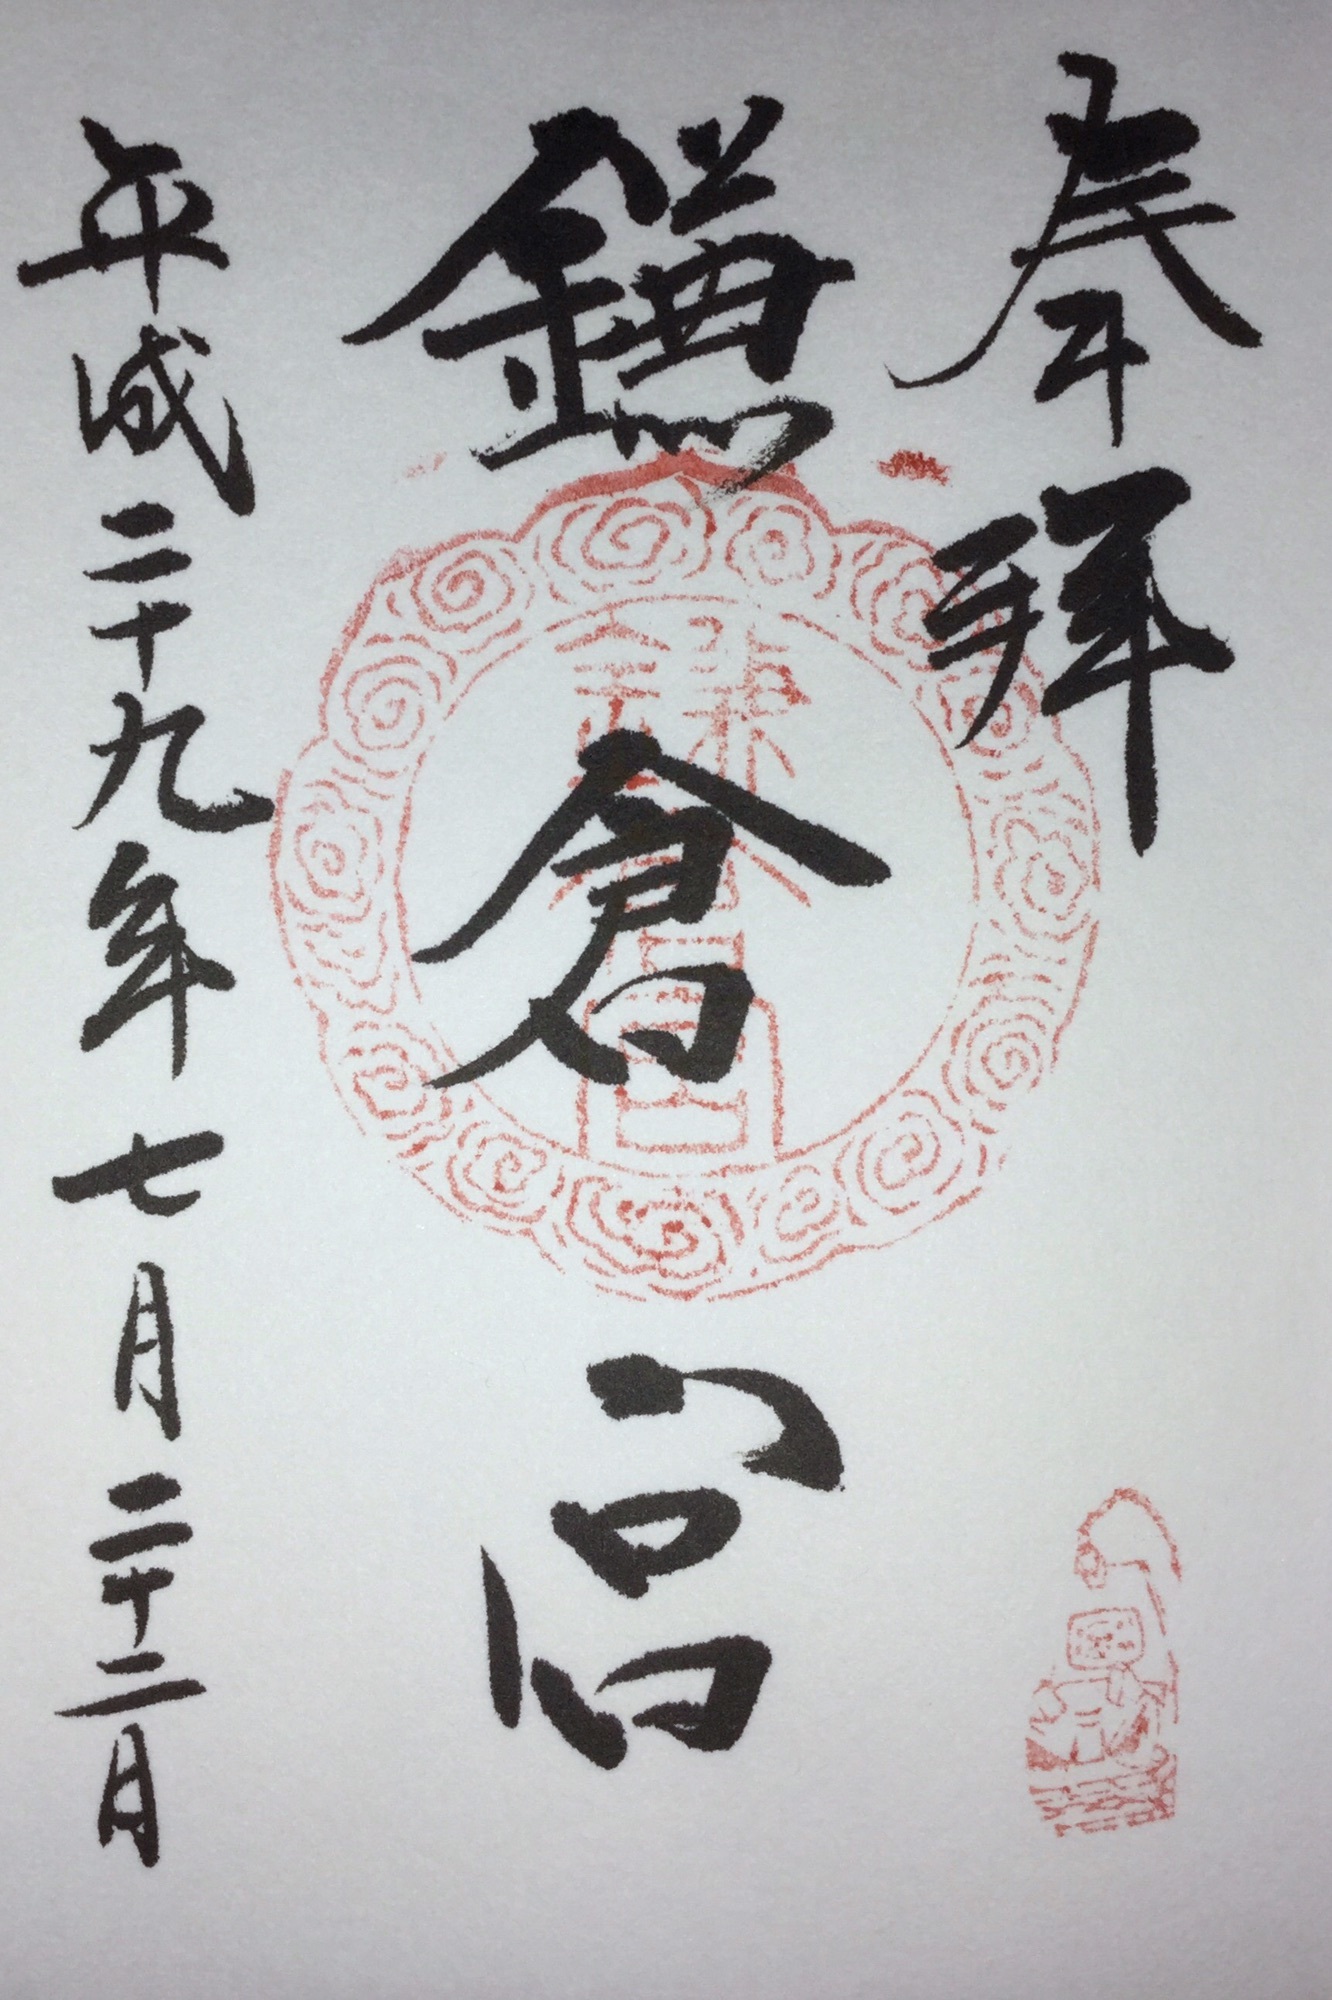 奉拝
鎌倉宮
鎌倉宮
平成二十九年七月二十二日